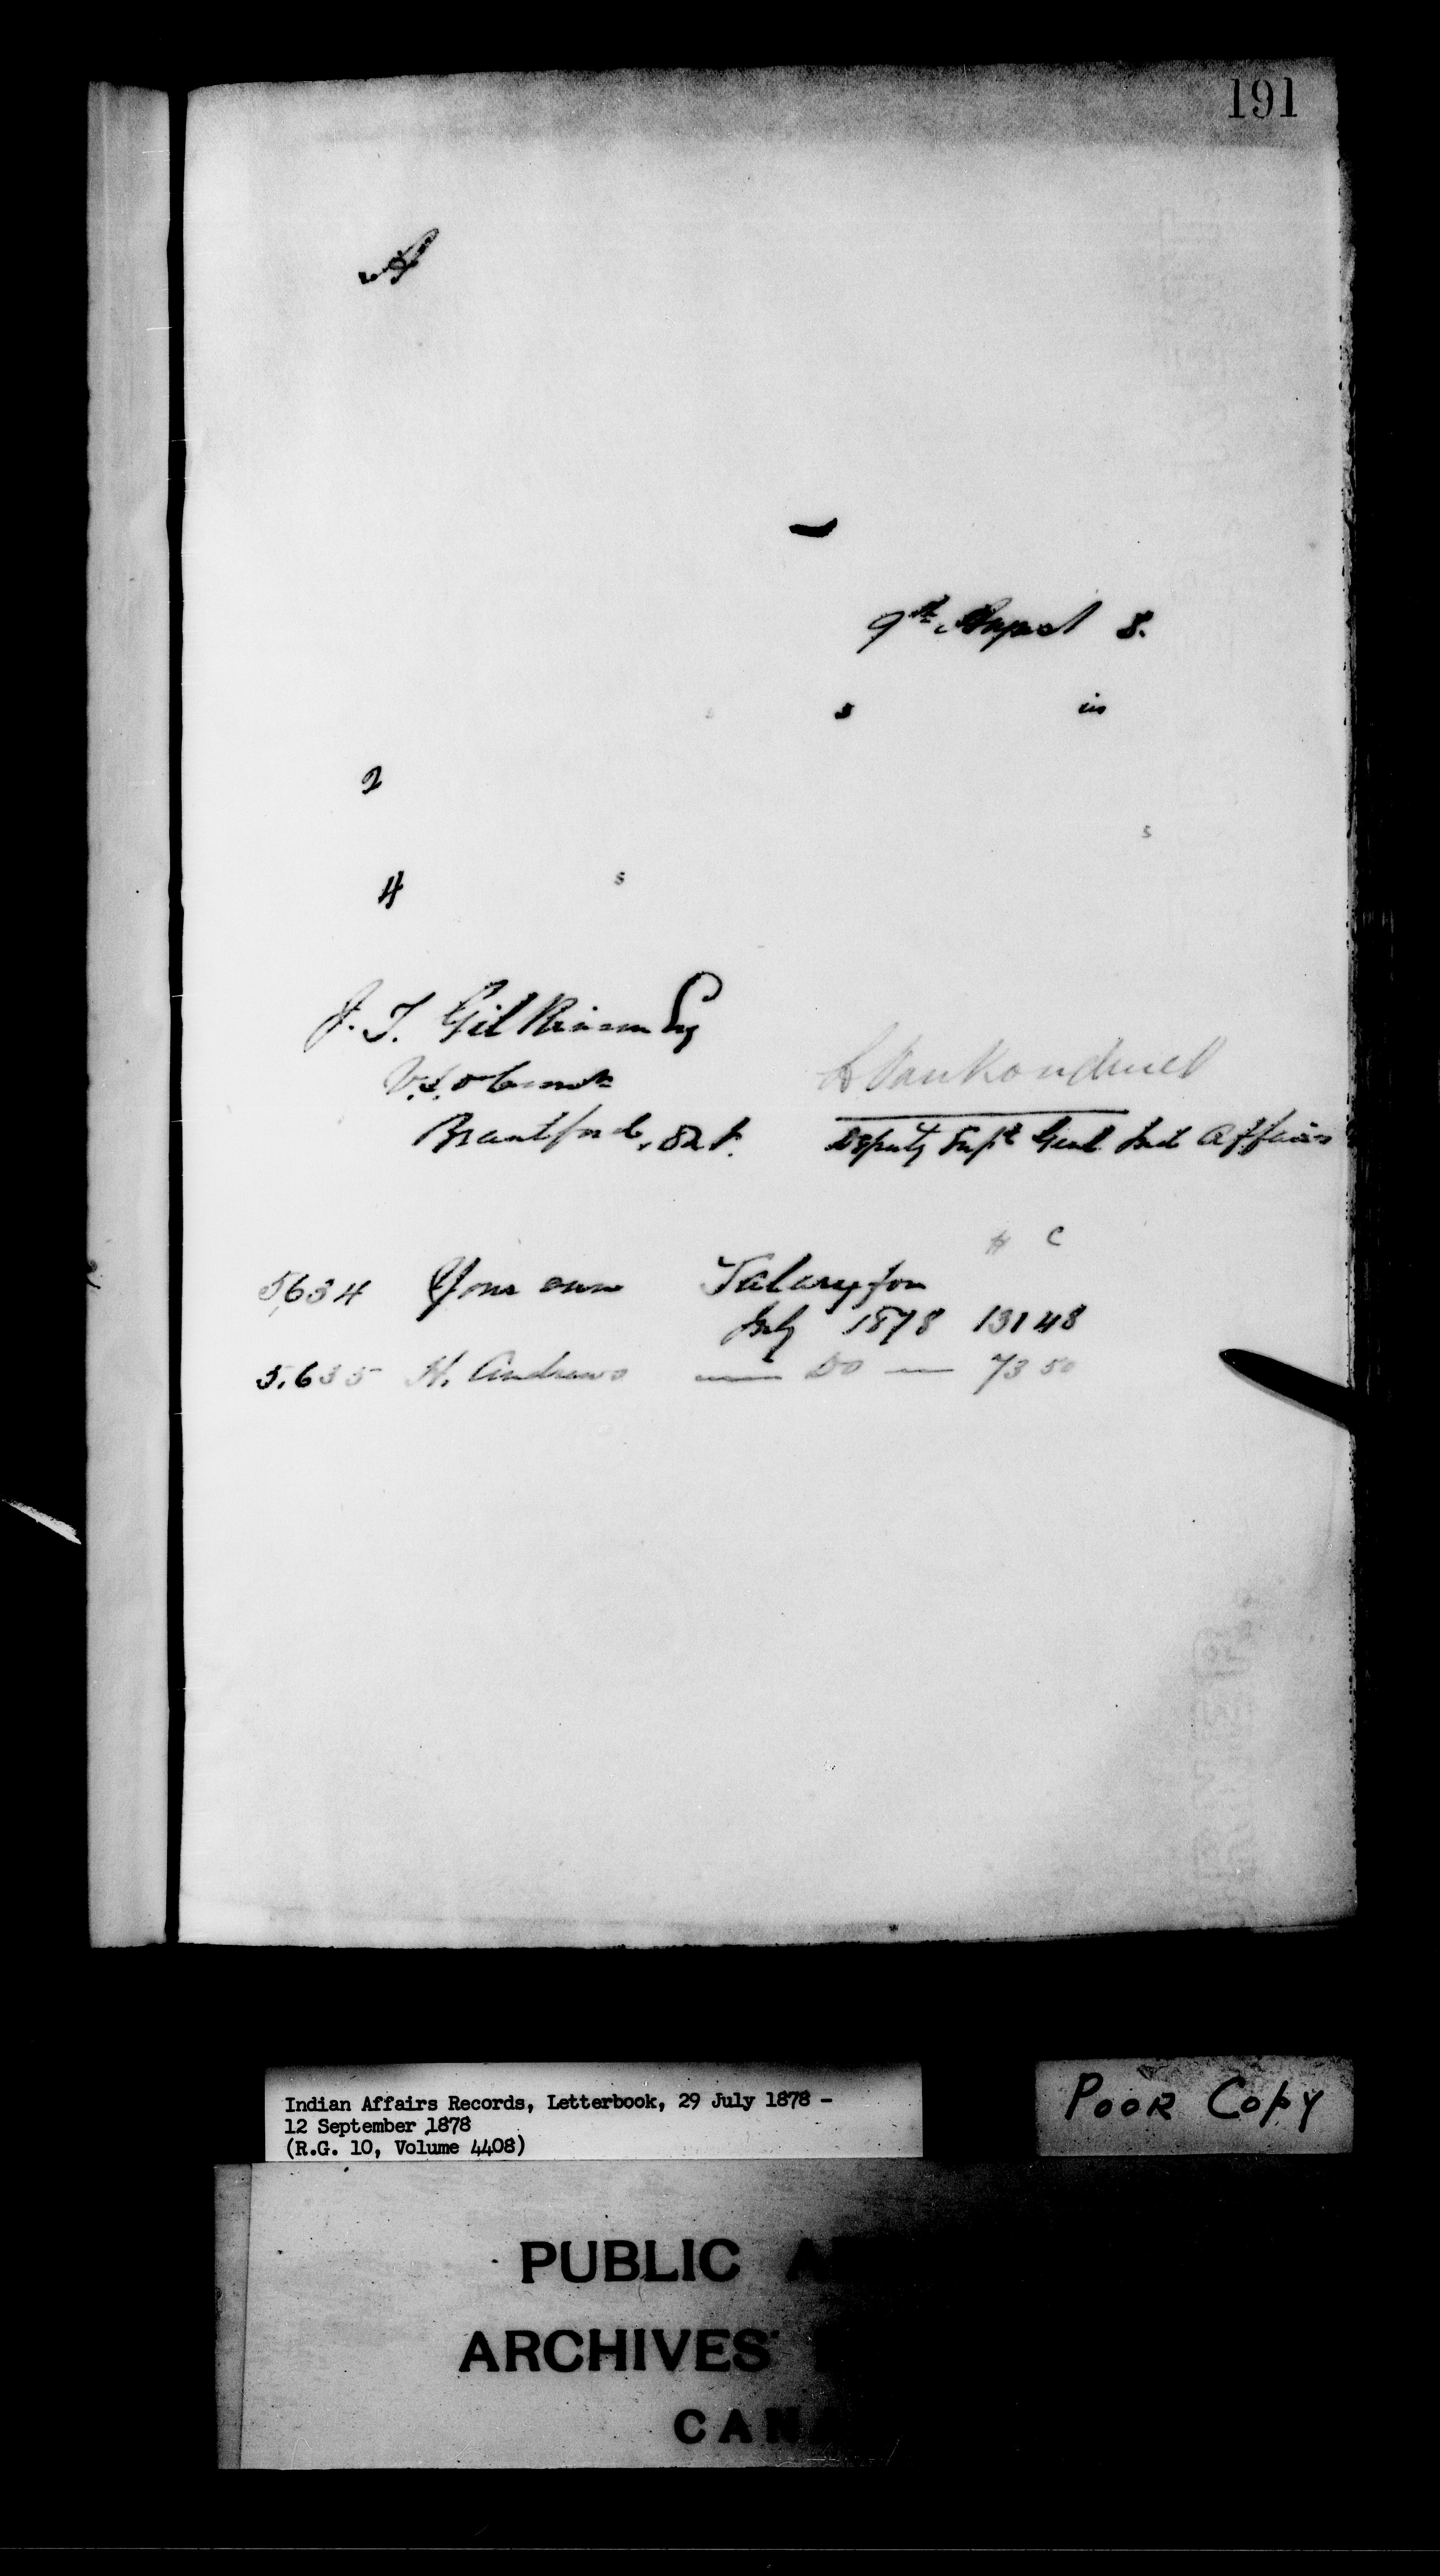 191
A
9th August 8.
s in
2
s
4 s
J. T. Gilkison Esq
V.S. & Comr
Brantford, Ont.
L Vankoughnet
Deputy Supt Genl Ind Affairs
$ C
5,634 Your own Salary for
July 1878 131 48
5,635 H. Andrews — Do — 73 50
Indian Affairs Records, Letterbook, 29 July 1878 -
12 September 1878
(R.G. 10, Volume 4408)
POOR COPY
PUBLIC A
ARCHIVES
CANA